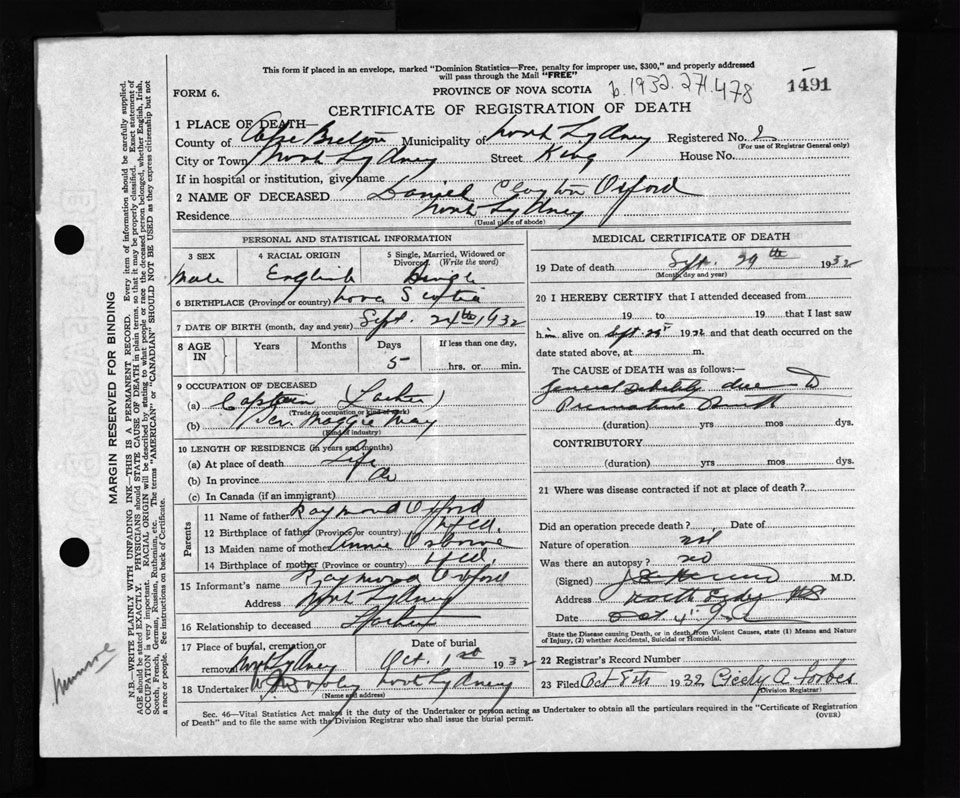 This form if placed in an envelope, marked "Dominion Statistics—Free, penalty for improper use, $300," and properly addressed
will pass through the Mail "FREE"
FORM 6. PROVINCE OF NOVA SCOTIA b.1932.271.478 1491
CERTIFICATE OF REGISTRATION OF DEATH
1 PLACE OF DEATH—
County of Cape Breton Municipality of North Sydney Registered No.
(For use of Registrar General only)
City or Town North Sydney Street King House No.
If in hospital or institution, give name
2 NAME OF DECEASED Daniel Clayton Oxford
Residence North Sydney
(Usual place of abode)
PERSONAL AND STATISTICAL INFORMATION
3 SEX 4 RACIAL ORIGIN 5 Single, Married, Widowed or
Divorced (Write the word)
Male English Single
6 BIRTHPLACE (Province or country) Nova Scotia
7 DATE OF BIRTH (month, day and year) Sept. 24th 1932
8 AGE IN Years Months Days If less than one day,
5 hrs. or min.
9 OCCUPATION OF DECEASED
(a) Captain
(Trade or occupation or kind of work)
(b) Maggie May
(Kind of industry)
10 LENGTH OF RESIDENCE (in years and months)
(a) At place of death Life
(b) In province do
(c) In Canada (if an immigrant)
Parents
11 Name of father Raymond Oxford
12 Birthplace of father (Province or country) Nfld.
13 Maiden name of mother Annie Osborne
14 Birthplace of mother (Province or country) Nfld.
15 Informant's name Raymond Oxford
Address North Sydney
16 Relationship to deceased Father
17 Place of burial, cremation or Date of burial
removal North Sydney Oct. 1st 1932
18 Undertaker North Sydney
(Name and address)
MEDICAL CERTIFICATE OF DEATH
19 Date of death Sept. 29th 1932
(Month, day and year)
20 I HEREBY CERTIFY that I attended deceased from
19 to 19 that I last saw
him alive on Sept. 25 1932 and that death occurred on the
date stated above, at m.
The CAUSE OF DEATH was as follows:—
General debility due to
Premature Birth
(duration) yrs mos dys.
CONTRIBUTORY
(duration) yrs mos dys.
21 Where was disease contracted if not at place of death?
Did an operation precede death? Date of
Nature of operation
Was there an autopsy? no
(Signed) M.D.
Address North Sydney NS
Date Oct. 4
State the Disease causing Death, or in death from Violent Causes, state (1) Means and Nature
of Injury, (2) whether Accidental, Suicidal or Homicidal.
22 Registrar's Record Number
23 Filed Oct 8th 1932 Cicely A Forbes
(Division Registrar)
Sec. 46—Vital Statistics Act makes it the duty of the Undertaker or person acting as Undertaker to obtain all the particulars required in the "Certificate of Registration
of Death" and to file the same with the Division Registrar who shall issue the burial permit.
(OVER)
MARGIN RESERVED FOR BINDING
N.B.—WRITE PLAINLY WITH UNFADING INK—THIS IS A PERMANENT RECORD. Every item of information should be carefully supplied.
AGE should be stated EXACTLY. PHYSICIANS should STATE CAUSE OF DEATH in plain terms, so that it may be properly classified. Exact statement of
OCCUPATION is very important. RACIAL ORIGIN will be described by stating to what people or race the deceased person belonged, whether English, Irish,
Scotch, French, German, Russian, Ruthenian, etc. The terms "AMERICAN" or "CANADIAN" SHOULD NOT BE USED as they express citizenship but not
a race or people. See instructions on back of Certificate.